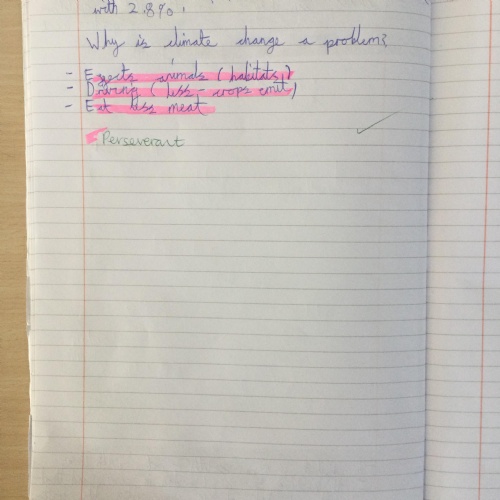 with 2.8%.
Why is climate change a problem?
- Effects animals (habitats)
- Driving (less - crops emit)
- Eat less meat
Perseverant